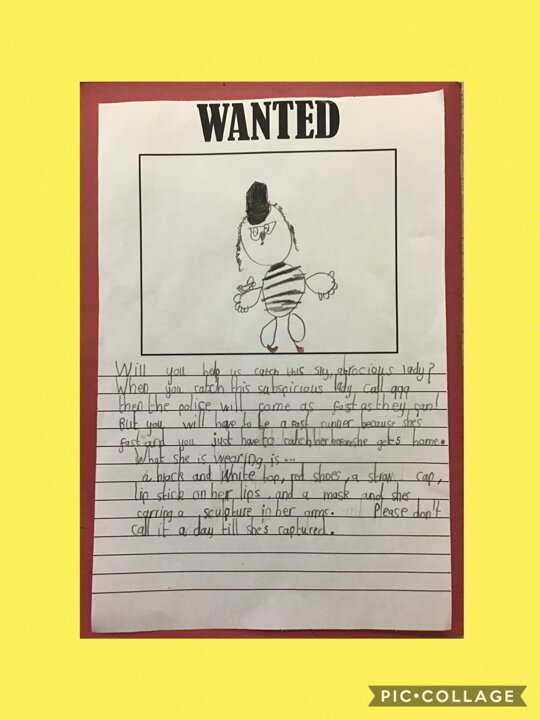 WANTED
Will you help us catch this sly, atrocious lady?
When you catch this subspicious lady call 999
then the police will come as fast as they can!
But you will have to be a fast runner because she's
fast and you just have to catch her before she gets home.
What she is wearing is...
a black and white top, red shoes, a straw cap,
lip stick on her lips, and a mask and she's
carring a sculpture in her arms. Please don't
call it a day till she's captured.
PIC•COLLAGE